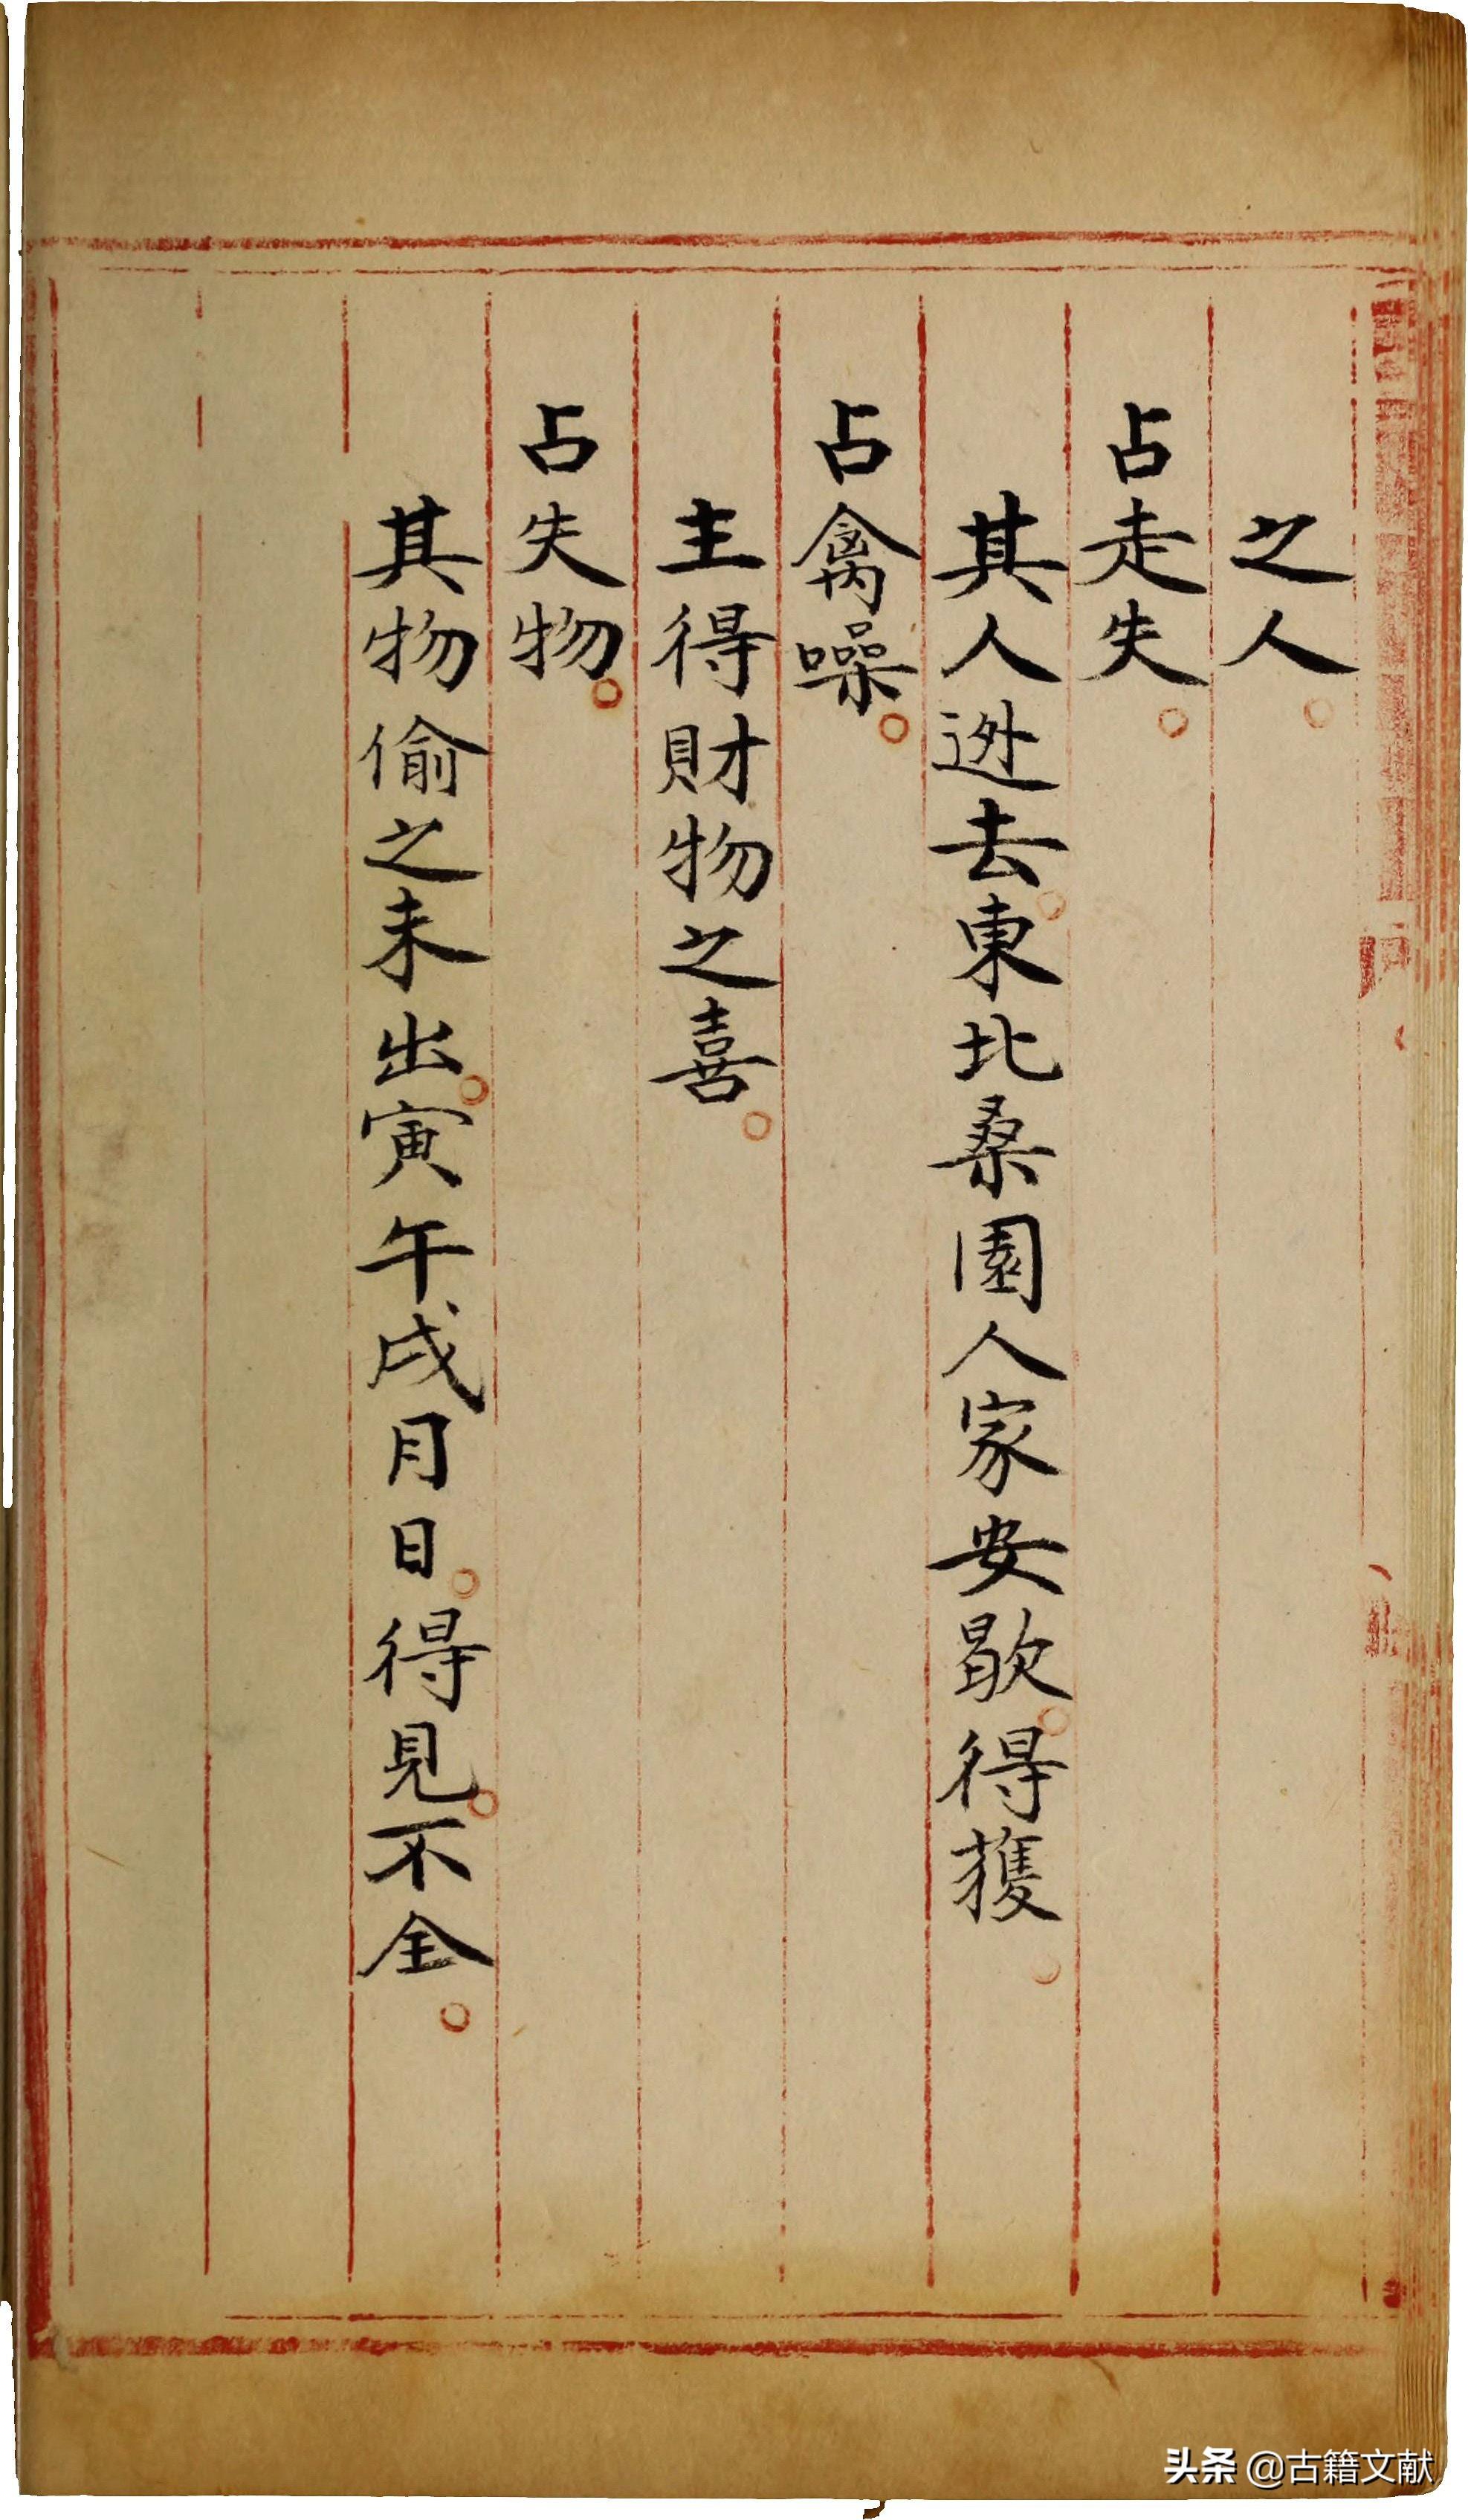 之人。
占走失。
其人迯去。東北桑園人家安歇。得獲。
占禽噪。
主得財物之喜。
占失物。
其物偷之未出。寅午戌月日。得見。不全。
头条 @古籍文献